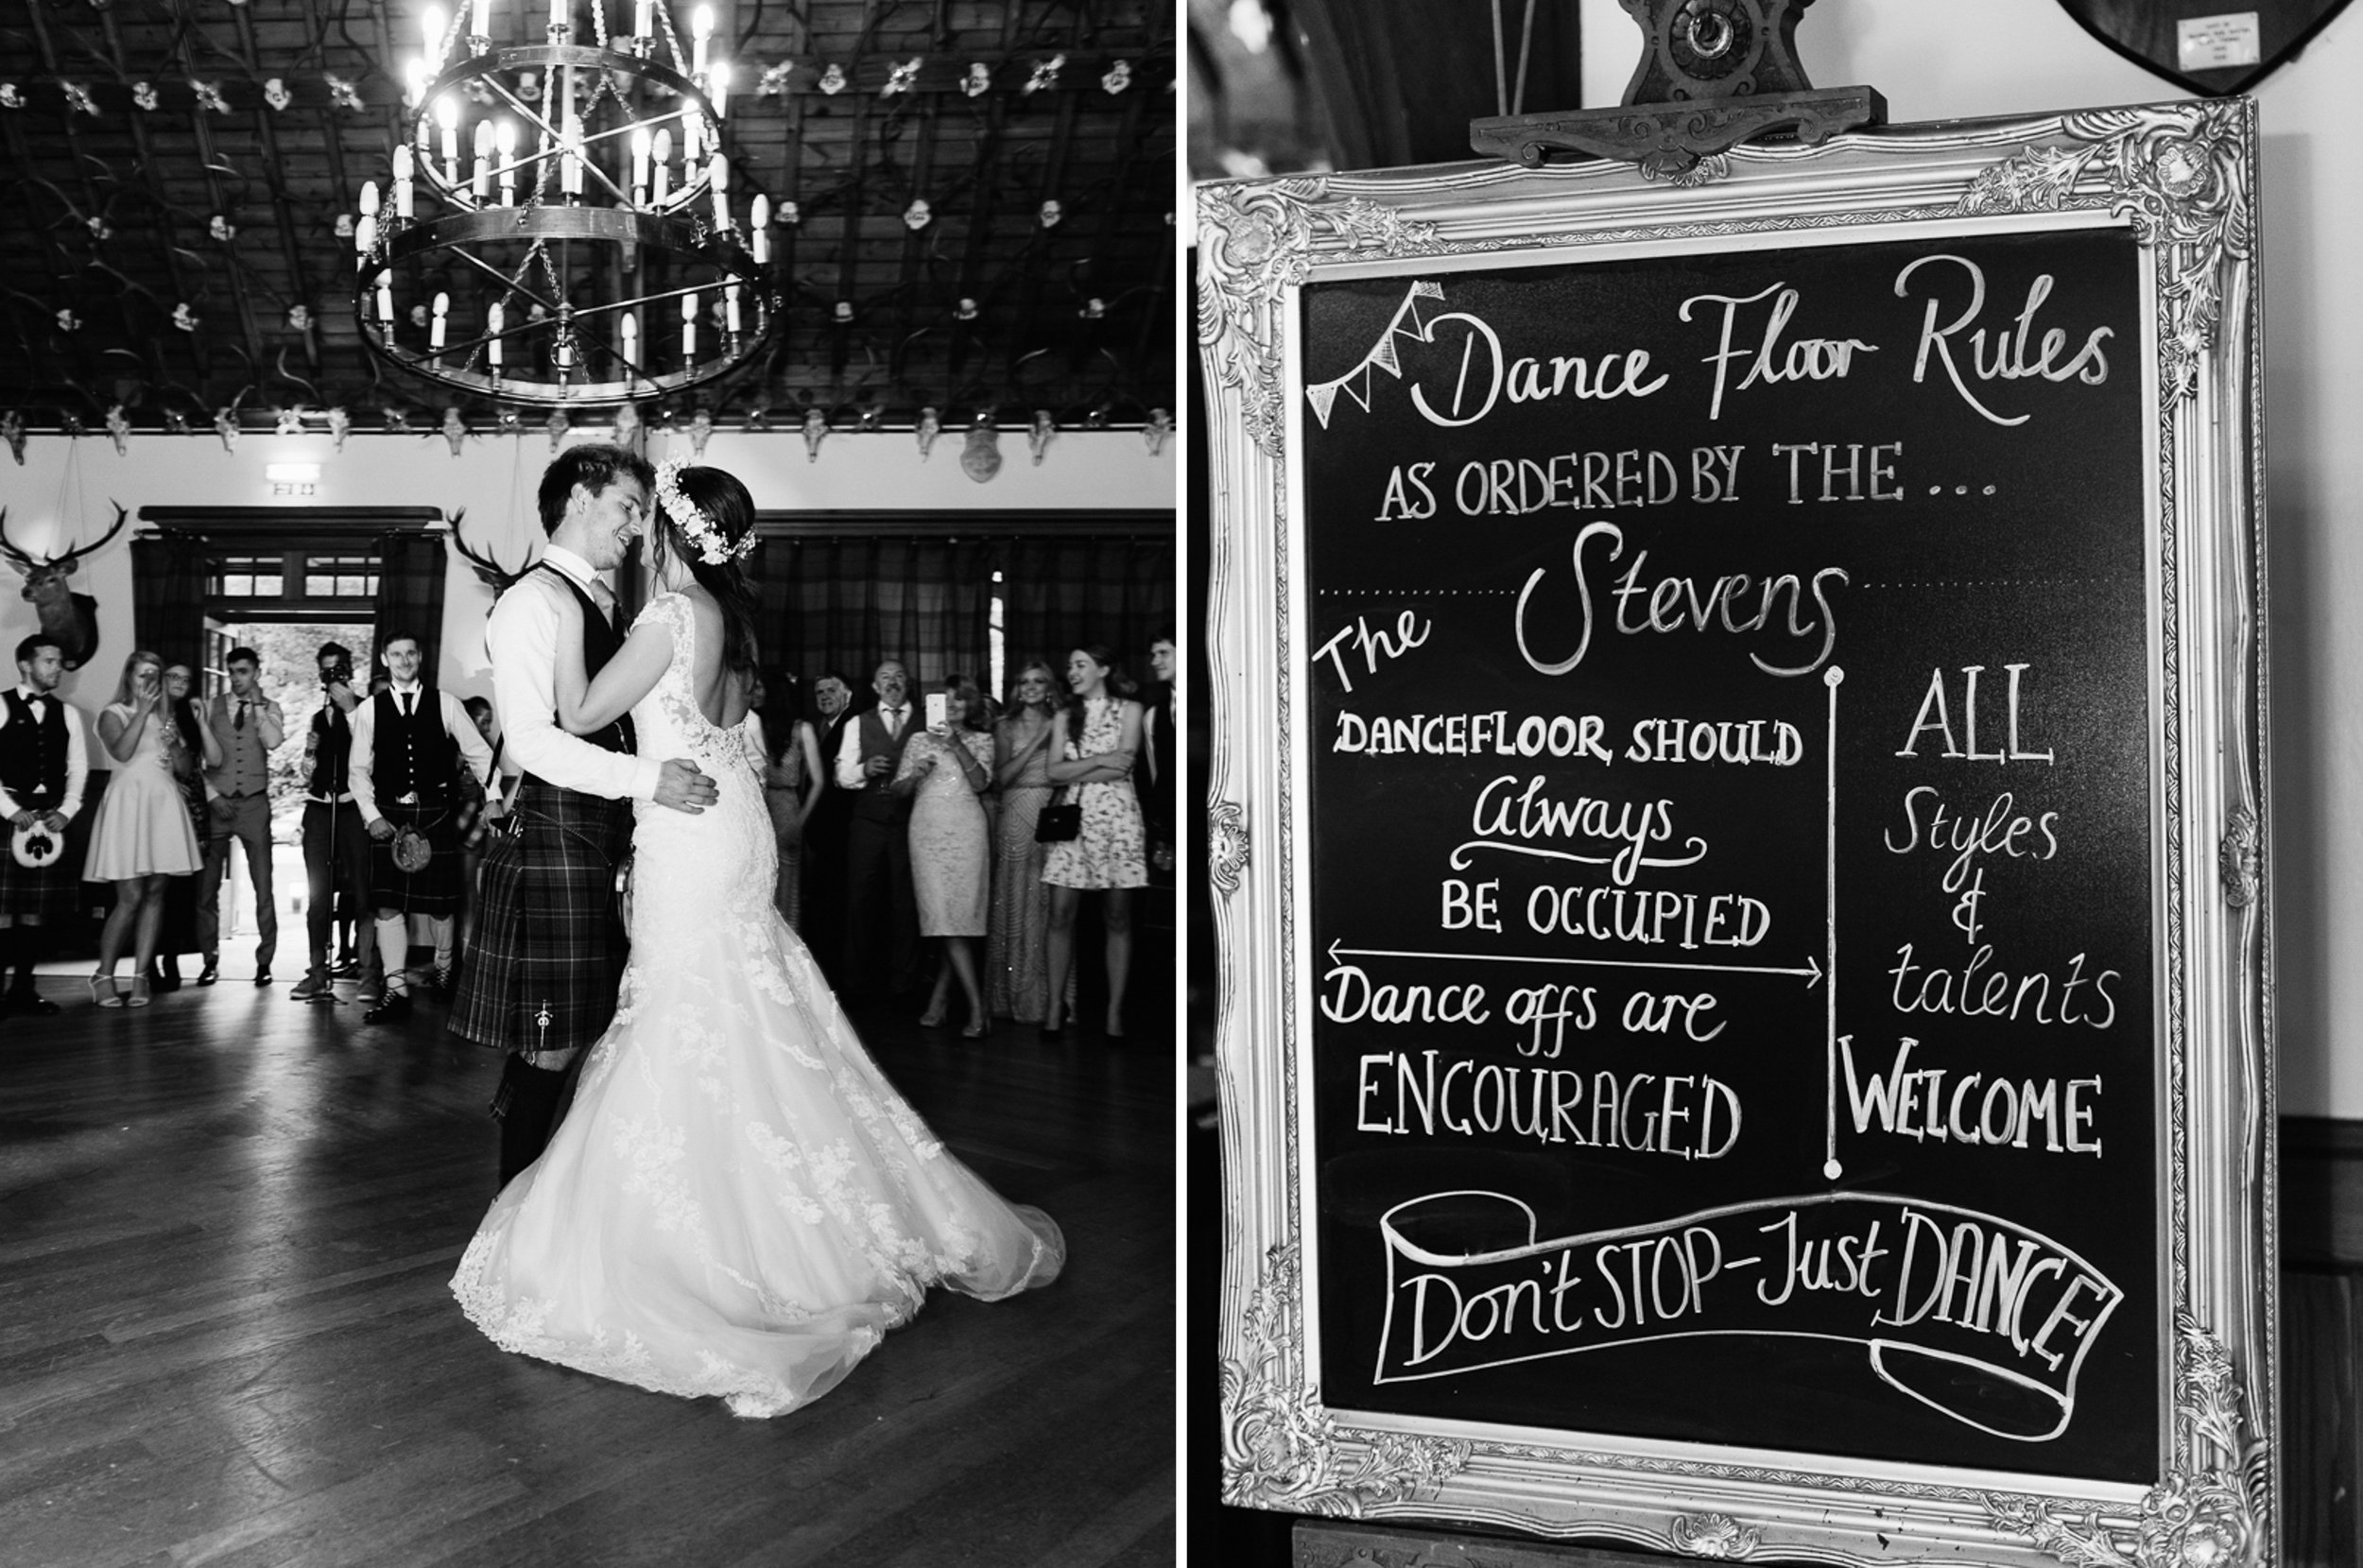 Dance Floor Rules
AS ORDERED BY THE ...
Stevens
The
DANCEFLOOR SHOULD
Always
BE OCCUPIED
Dance offs are
ENCOURAGED
ALL
Styles
&
talents
WELCOME
Don't STOP - Just DANCE